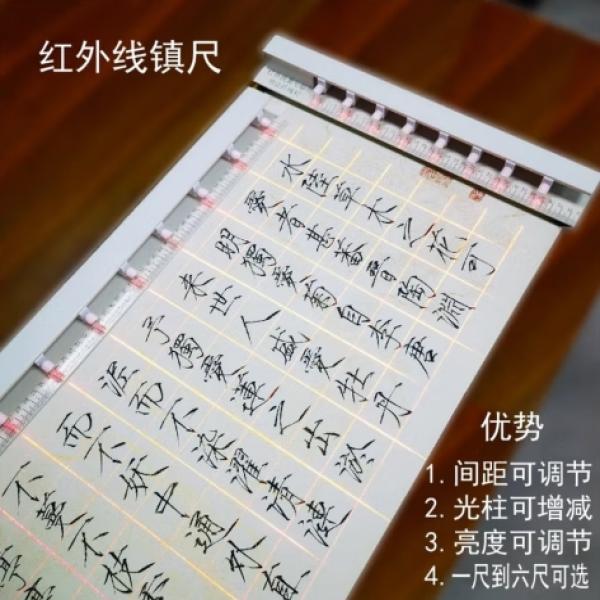 红外线镇尺
水陸草木之花可
愛者甚蕃晉陶淵
明獨愛菊自李唐
来世人盛愛牡丹
予獨愛蓮之出淤
泥而不染濯清漣
而不妖中通外直
不蔓不枝
亭亭
优势
1. 间距可调节
2. 光柱可增减
3. 亮度可调节
4. 一尺到六尺可选